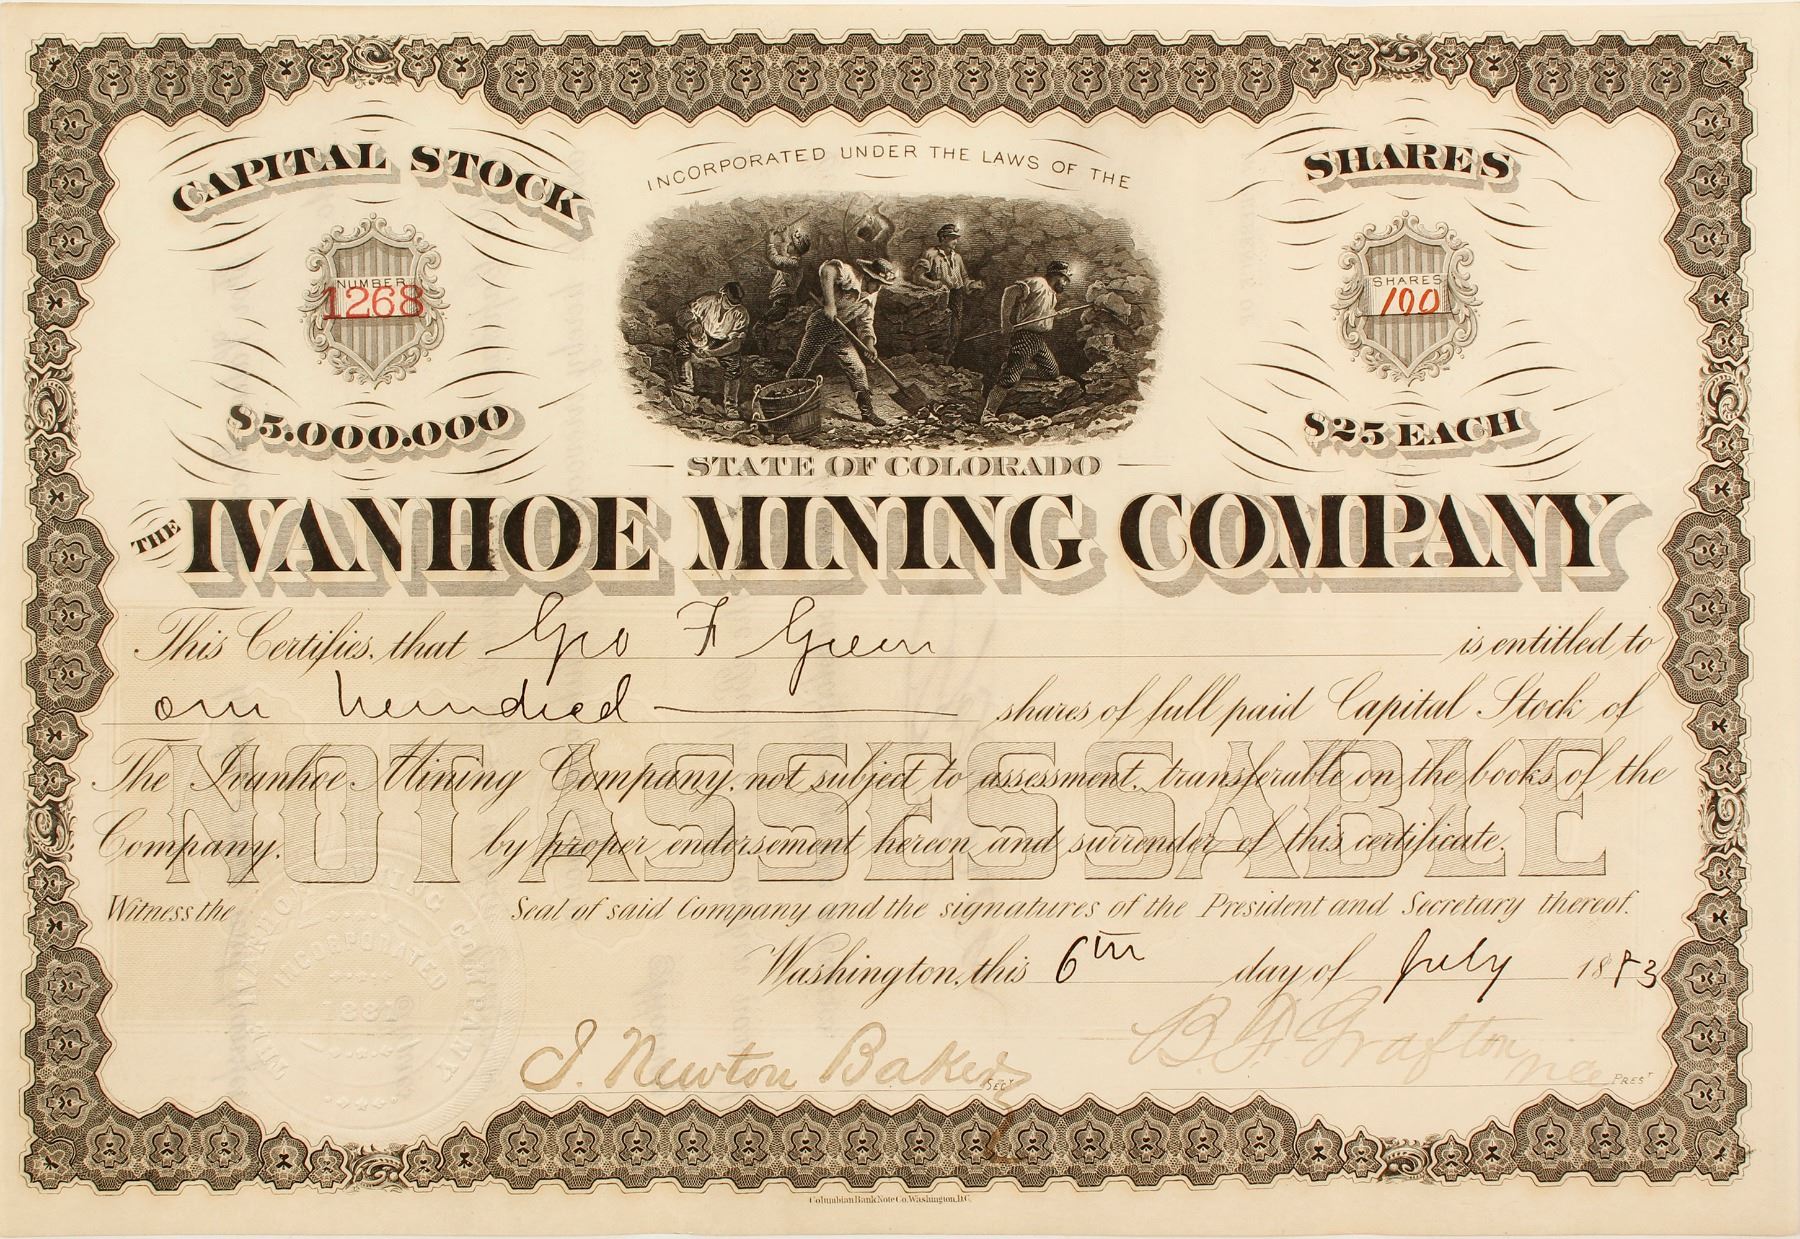 CAPITAL STOCK
INCORPORATED UNDER THE LAWS OF THE
SHARES
NUMBER
1268
SHARES
100
$5.000.000
$25 EACH
STATE OF COLORADO
THE IVANHOE MINING COMPANY
This Certifies, that Geo F Green is entitled to
one hundred shares of full paid Capital Stock of
The Ivanhoe Mining Company, not subject to assessment, transferable on the books of the
NOT ASSESSABLE
Company, by proper endorsement hereon and surrender of this certificate.
Witness the Seal of said Company and the signatures of the President and Secretary thereof.
Washington, this 6th day of July 1883
THE IVANHOE MINING COMPANY
INCORPORATED
J. Newton Baker SECT
B. F. Grafton PREST
Columbian Bank Note Co. Washington, D.C.